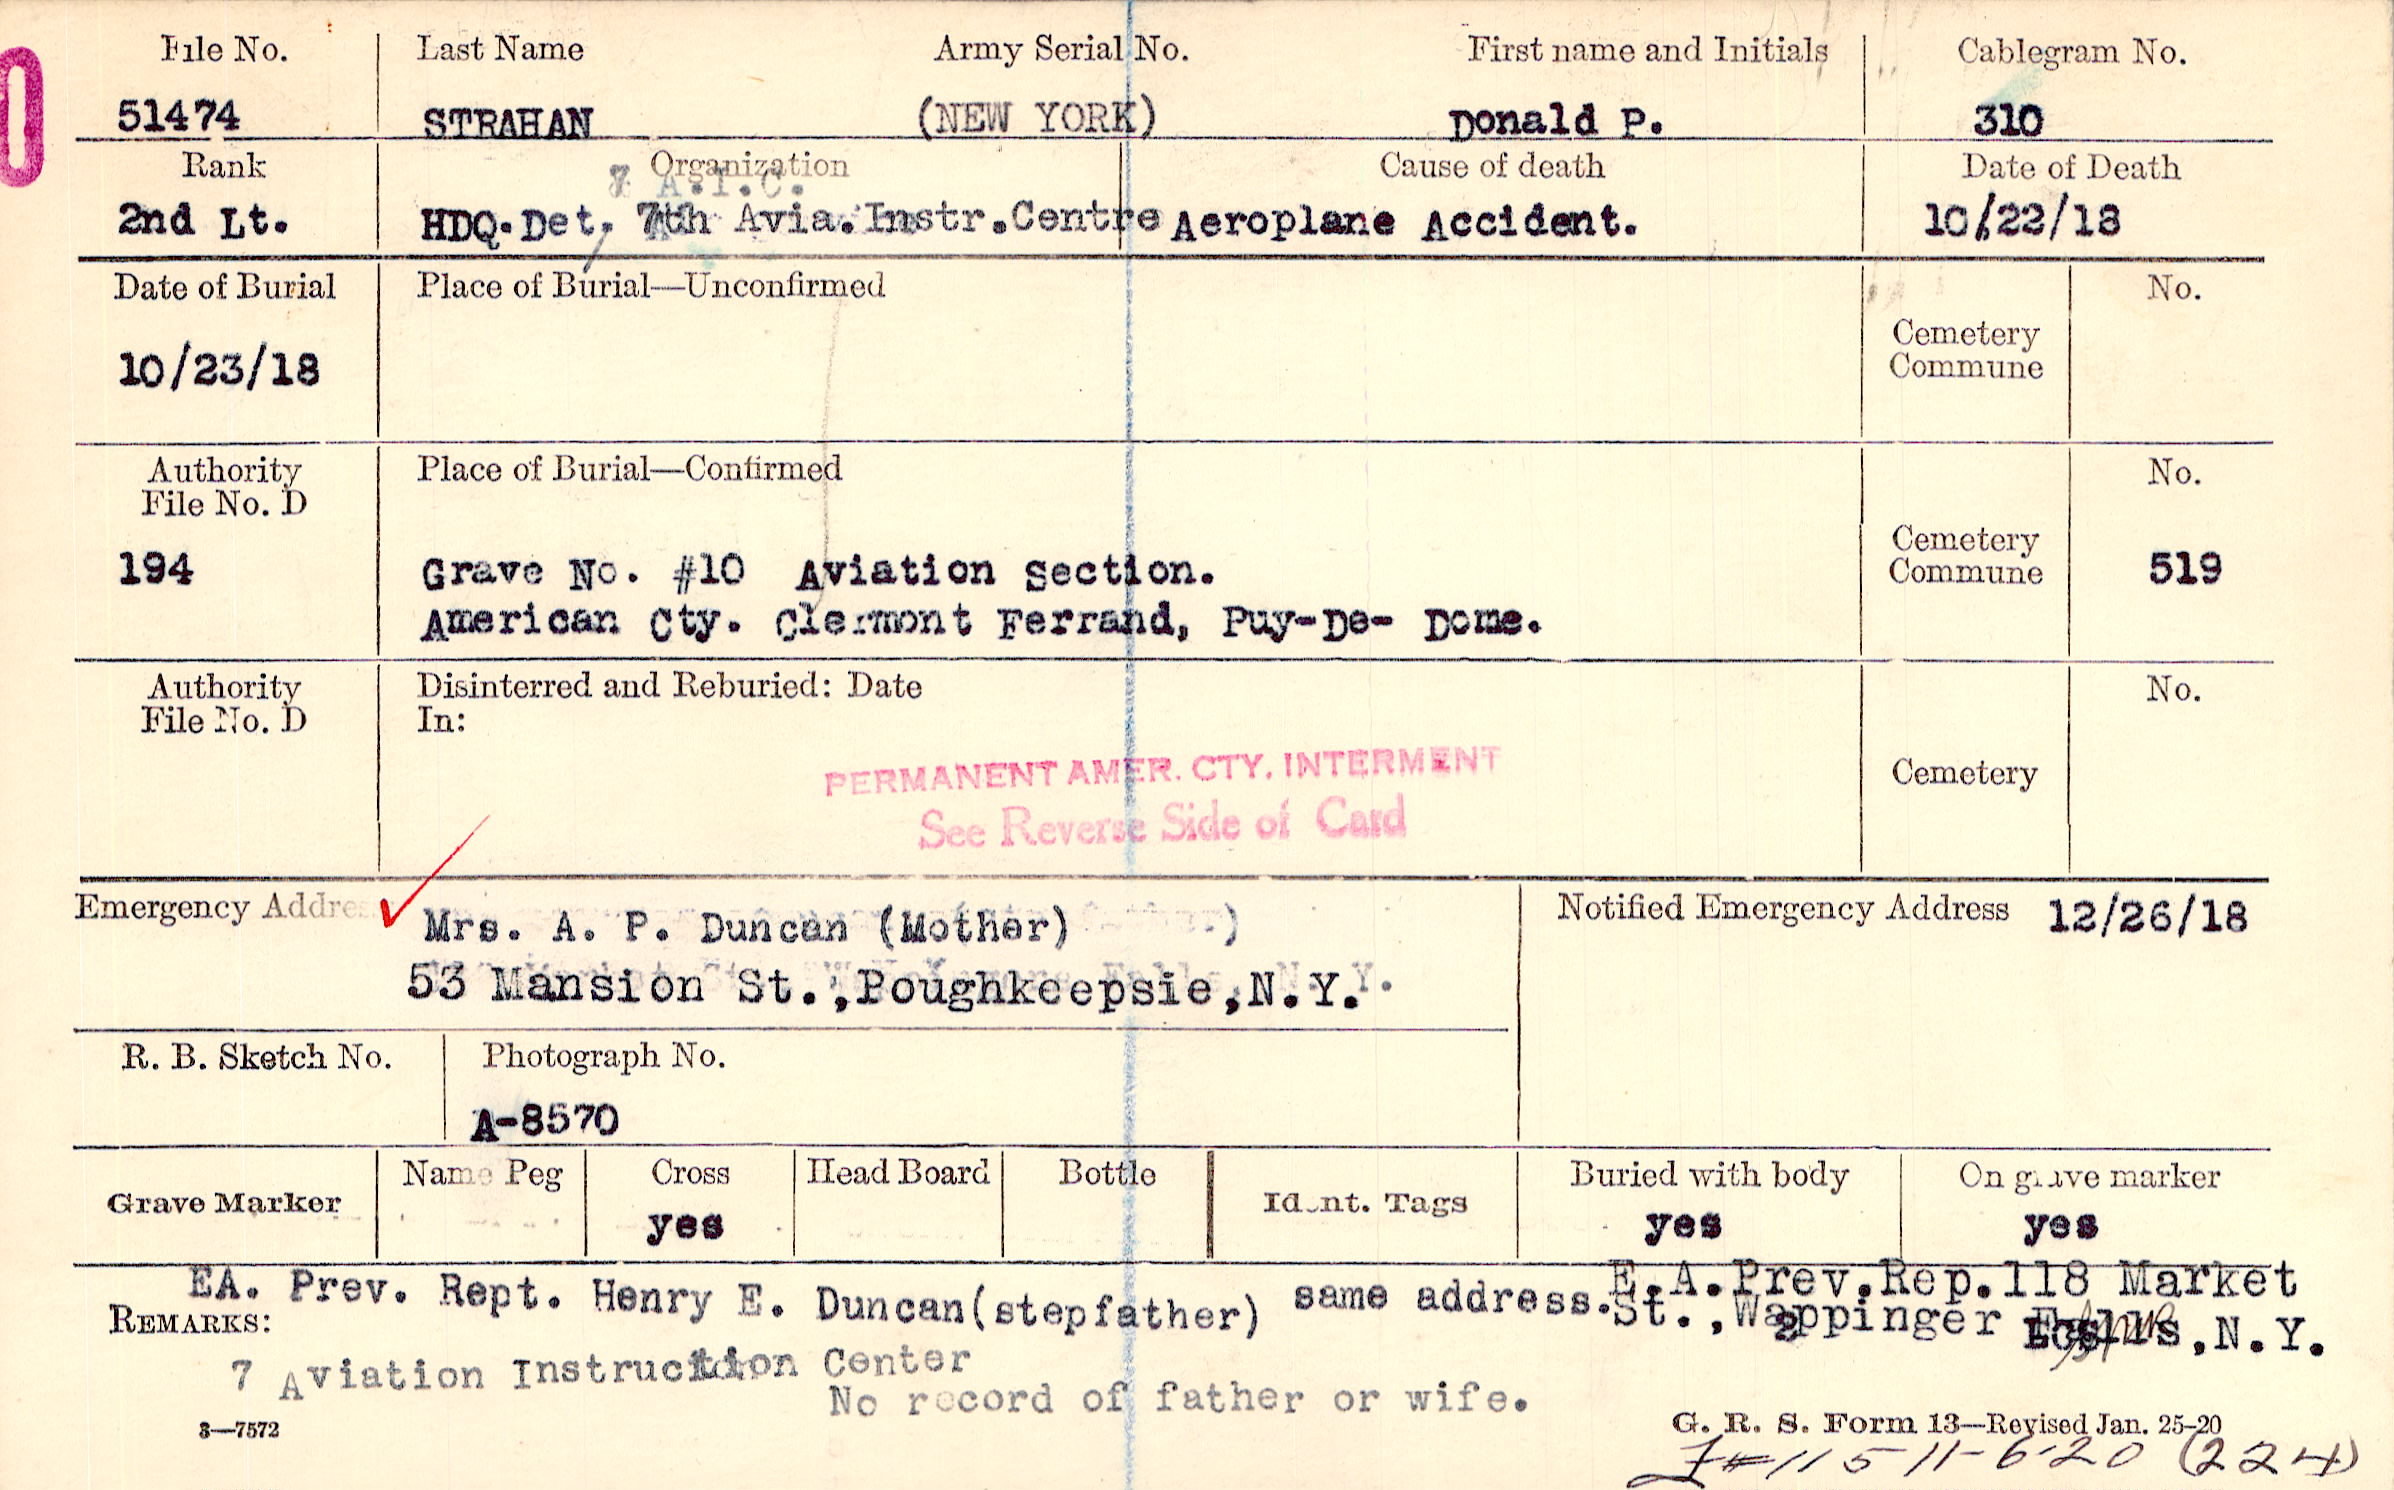 File No. Last Name Army Serial No. First name and Initials Cablegram No.
51474 STRAHAN (NEW YORK) Donald P. 310
Rank Organization Cause of death Date of Death
7 A.I.C.
2nd Lt. HDQ.Det. 7th Avia.Instr.Centre Aeroplane Accident. 10/22/18
Date of Burial Place of Burial—Unconfirmed No.
Cemetery
Commune
10/23/18
Authority Place of Burial—Confirmed No.
File No. D
Cemetery
Commune
194 Grave No. #10 Aviation section. 519
American Cty. Clermont Ferrand, Puy-De- Dome.
Authority Disinterred and Reburied: Date No.
File No. D In:
PERMANENT AMER. CTY. INTERMENT
Cemetery
See Reverse Side of Card
Emergency Address Mrs. A. P. Duncan (Mother) Notified Emergency Address 12/26/18
53 Mansion St.,Poughkeepsie,N.Y.
R. B. Sketch No. Photograph No.
A-8570
Grave Marker Name Peg Cross Head Board Bottle Ident. Tags Buried with body On grave marker
yes yes yes
EA. Prev. Rept. Henry E. Duncan(stepfather) same address. E.A.Prev.Rep.118 Market
REMARKS: St.,Wappinger Falls,N.Y.
7 Aviation Instruction Center
No record of father or wife.
3—7572 G. R. S. Form 13—Revised Jan. 25-20
11-6-20 (224)